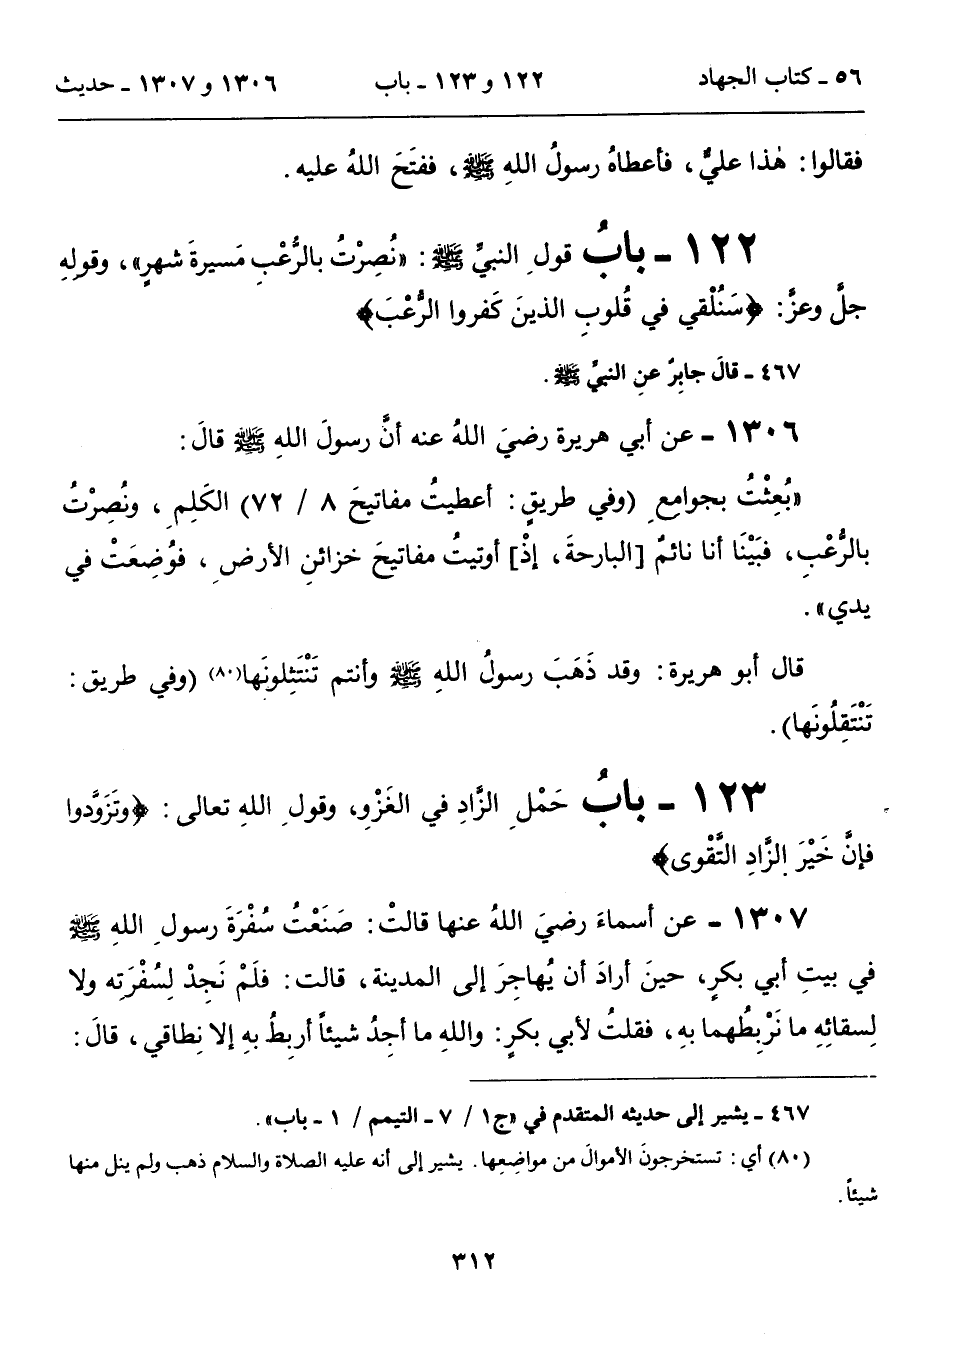 ٥٦ ـ كتاب الجهاد ١٢٢ و ١٢٣ ـ باب ١٣٠٦ و ١٣٠٧ ـ حديث
فقالوا: هٰذا عليٌّ، فأعطاهُ رسولُ اللهِ ﷺ، ففتَحَ اللهُ عليه.
١٢٢ ـ بابُ قولِ النبيِّ ﷺ: «نُصِرْتُ بالرُّعْبِ مَسيرةَ شهرٍ»، وقولِهِ
جلَّ وعزَّ: ﴿سَنُلْقي في قُلوبِ الذينَ كَفروا الرُّعْبَ﴾
٤٦٧ ـ قالَ جابِرٌ عنِ النبيِّ ﷺ.
١٣٠٦ ـ عن أبي هريرة رضيَ اللهُ عنه أنَّ رسولَ اللهِ ﷺ قالَ:
«بُعِثْتُ بجوامعِ (وفي طريقٍ: أعطيتُ مفاتيحَ ٨ / ٧٢) الكَلِمِ، ونُصِرْتُ
بالرُّعْبِ، فبَيْنَا أنا نائمٌ [البارحةَ، إذْ] أوتيتُ مفاتيحَ خزائنِ الأرضِ، فوُضِعَتْ في
يدي».
قال أبو هريرة: وقد ذَهَبَ رسولُ اللهِ ﷺ وأنتم تَنْتَثِلونَها(٨٠) (وفي طريق:
تَنْتَقِلُونَها).
١٢٣ ـ بابُ حَمْلِ الزَّادِ في الغَزْوِ، وقولِ اللهِ تعالى: ﴿وتَزَوَّدوا
فإنَّ خَيْرَ الزَّادِ التَّقْوى﴾
١٣٠٧ ـ عن أسماءَ رضيَ اللهُ عنها قالتْ: صَنَعْتُ سُفْرَةَ رسولِ اللهِ ﷺ
في بيتِ أبي بكرٍ، حينَ أرادَ أن يُهاجِرَ إلى المدينة، قالت: فلَمْ نَجِدْ لِسُفْرَتِه ولا
لِسقائِهِ ما نَرْبِطُهما بهِ، فقلتُ لأبي بكرٍ: واللهِ ما أجِدُ شيئاً أربِطُ بهِ إلا نِطاقي، قالَ:
٤٦٧ ـ يشير إلى حديثه المتقدم في «ج١ / ٧ ـ التيمم / ١ ـ باب».
(٨٠) أي: تستخرجونَ الأموالَ من مواضِعِها. يشير إلى أنه عليه الصلاة والسلام ذهب ولم ينل منها
شيئاً.
٣١٢